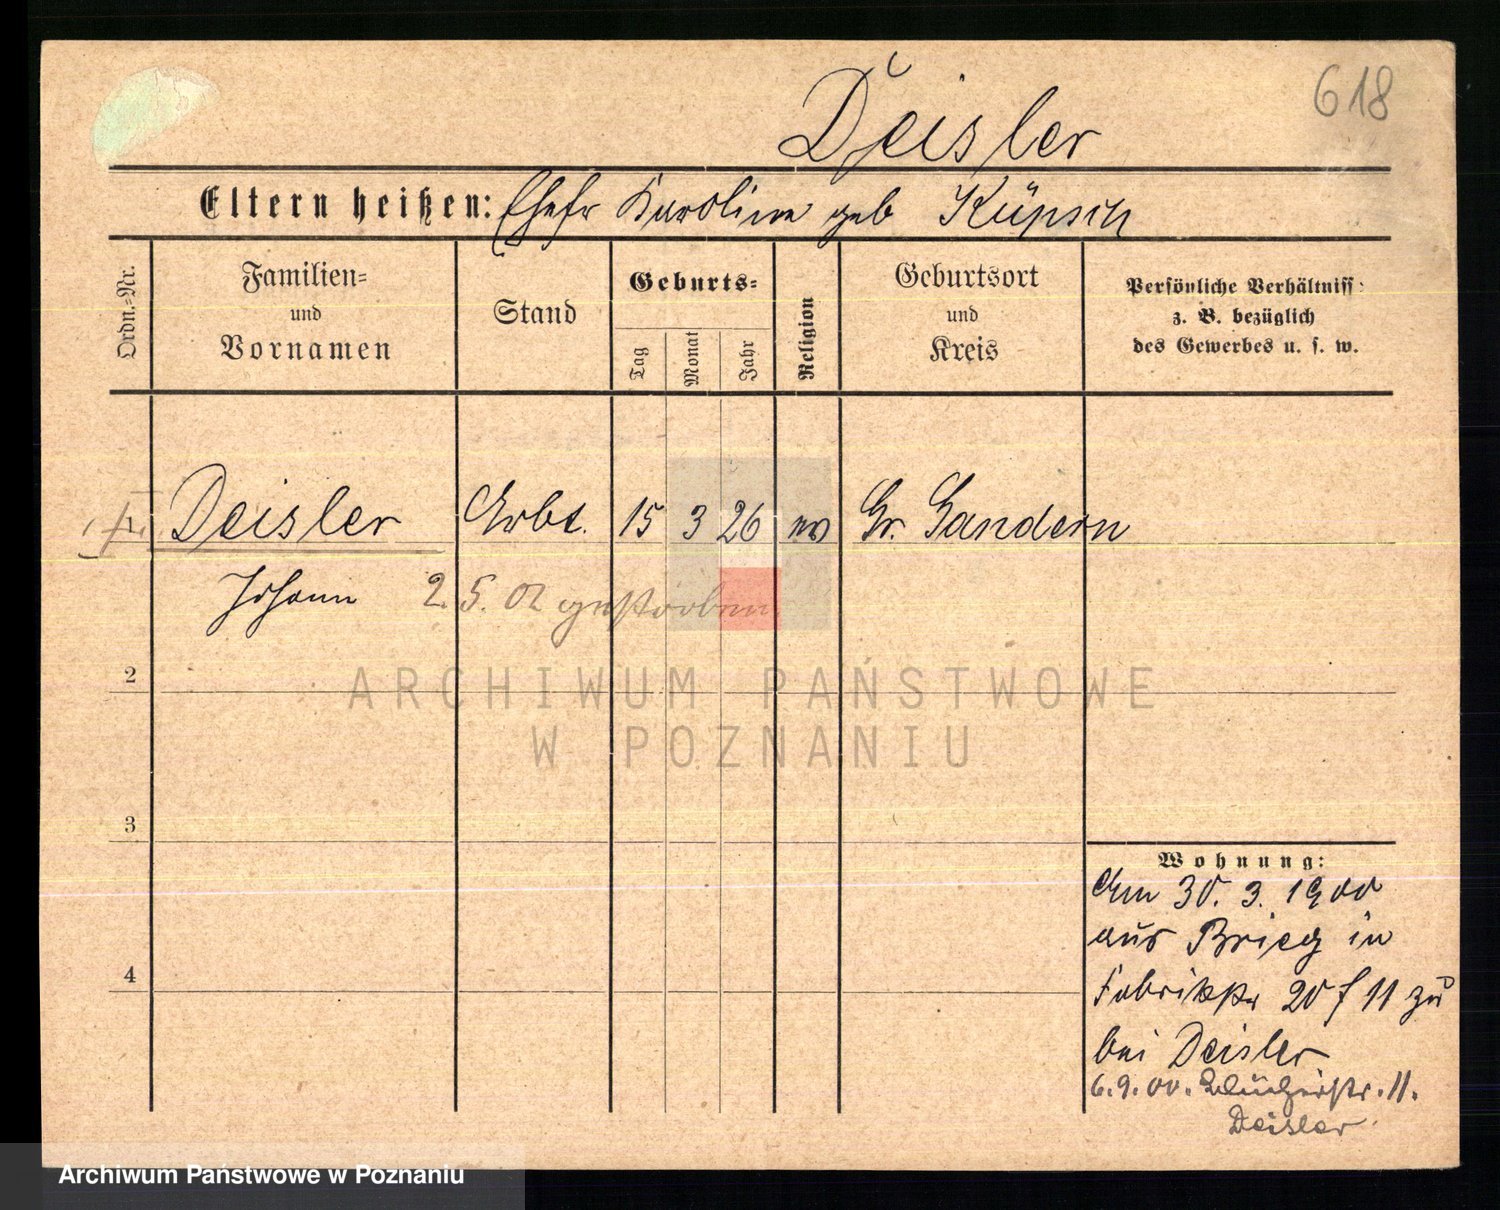 618
Deisler
Eltern heißen: Ehefr Karoline geb Küpsch
Ordn.-Nr.
Familien-
und
Vornamen
Stand
Geburts-
Tag
Monat
Jahr
Religion
Geburtsort
und
Kreis
Persönliche Verhältnisse
z. B. bezüglich
des Gewerbes u. s. w.
1 Deisler Arbt. 15 3 26 ev Gr. Gandern
Johann 2. 5. 02 gestorben
2
3
4
Wohnung:
Am 30. 3. 1900
aus Brieg in
Fabrikstr 20 f 11 zu
bei Deisler
6.9.00. Blücherstr. 11.
Deisler
ARCHIWUM PAŃSTWOWE
W POZNANIU
Archiwum Państwowe w Poznaniu